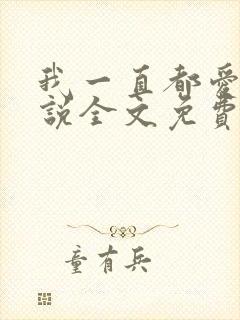 我一直都爱
說全文免費
童有兵